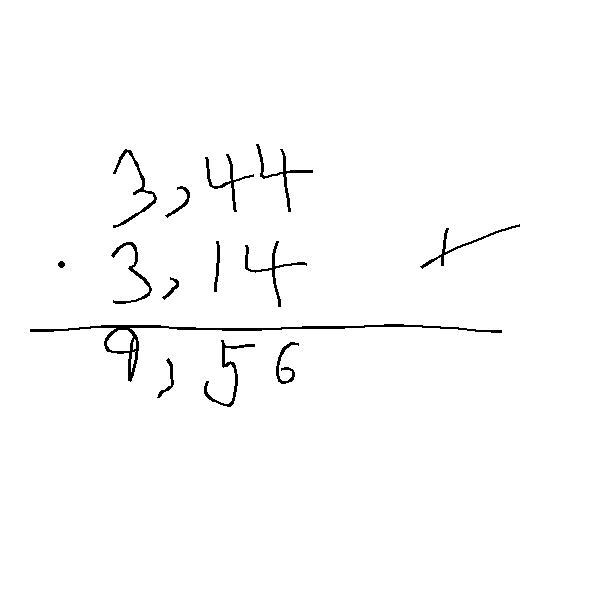 3,44
· 3,14 +
9,56